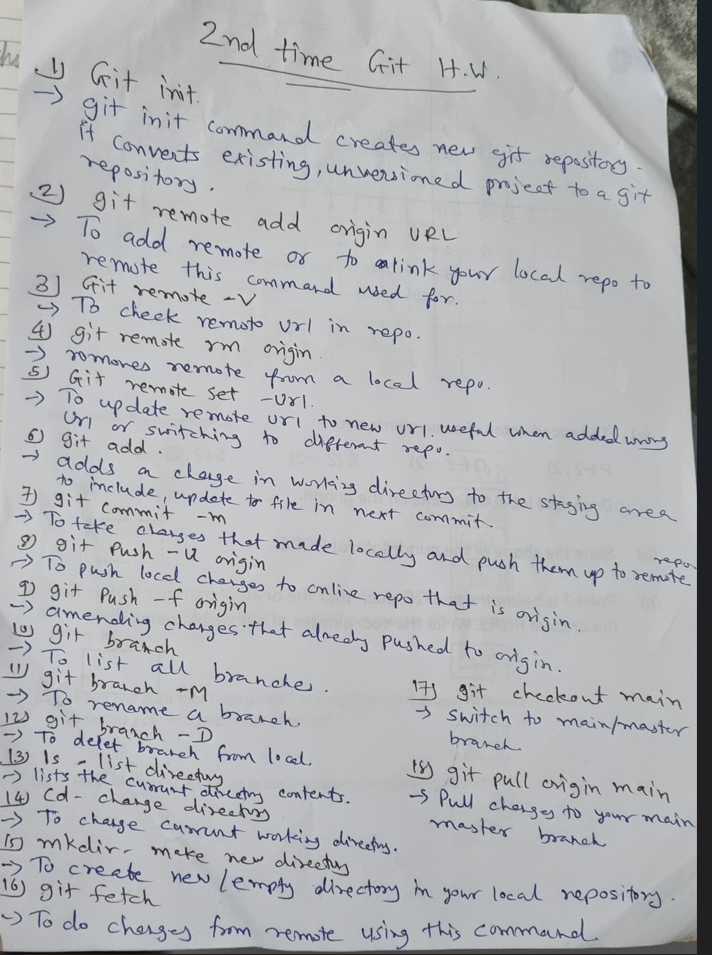 2nd time Git H.W.
1) Git init.
→ git init command creates new git repository.
it converts existing, unversioned project to a git
repository.
2) git remote add origin URL
→ To add remote or to link your local repo to
remote this command used for.
3) Git remote -V
→ To check remote url in repo.
4) git remote rm origin.
→ romoves remote from a local repo.
5) Git remote set -Url.
→ To update remote url to new url. useful when added wrong
Url or switching to different repo.
6) git add .
→ adds a change in working directory to the staging area
to include, update to file in next commit.
7) git commit -m
→ To take changes that made locally and push them up to remote repo
8) git Push -U origin
→ To push local changes to online repo that is origin.
9) git Push -f origin
→ amending changes that already pushed to origin.
10) git branch
→ To list all branches.
11) git branch -M
→ To rename a branch
12) git branch -D
→ To delet branch from local.
13) ls - list directory
→ lists the currunt directory contents.
14) Cd - change directory
→ To change currunt working directory.
15) mkdir - make new directory
→ To create new/empty directory in your local repository.
16) git fetch
→ To do changes from remote using this command
17) git checkout main
→ switch to main/master
branch
18) git pull origin main
→ Pull changes to your main
master branch